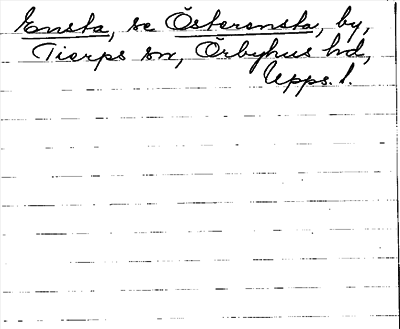 Ensta, se Österensta, by,
Tierps sn, Örbyhus hd,
Upps. l.